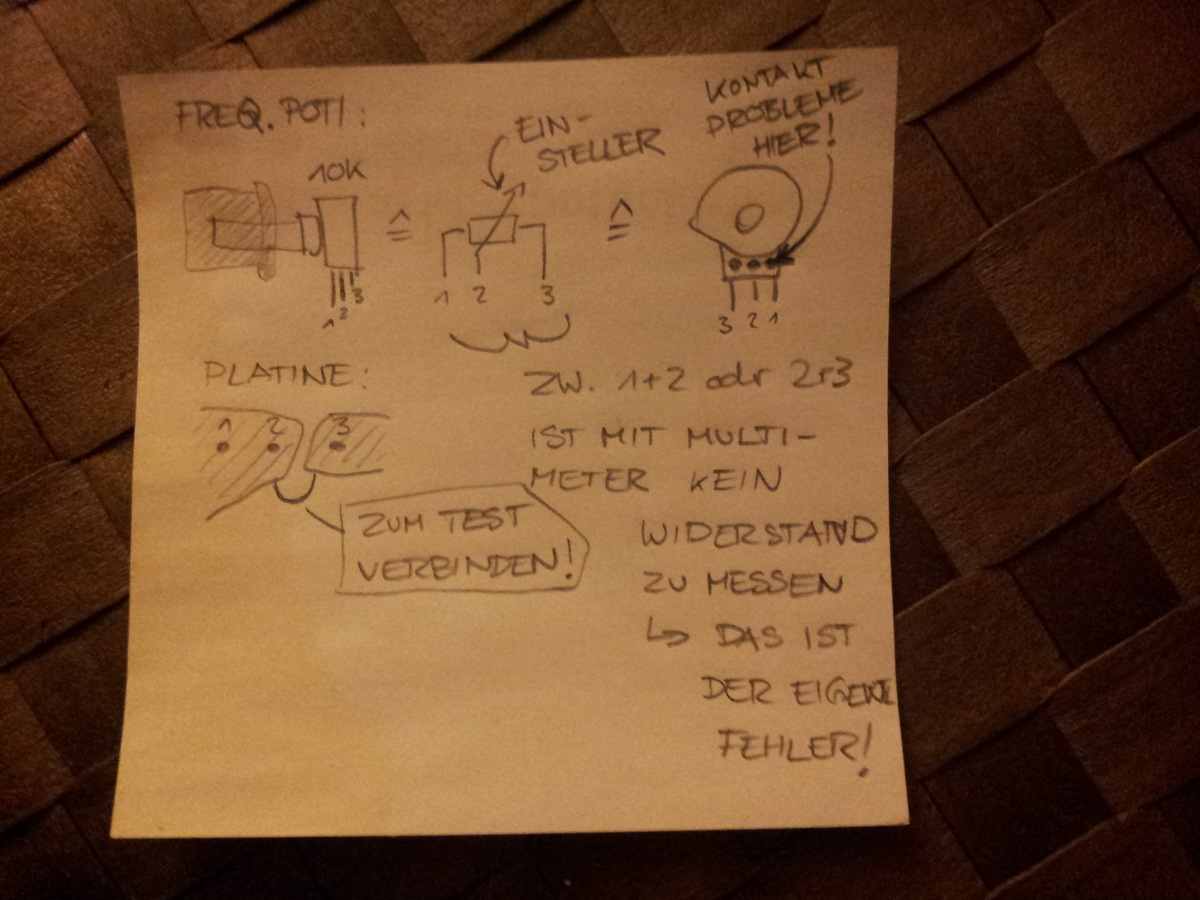 FREQ. POTI:
10K
1 2 3
EIN-
STELLER
1 2 3
KONTAKT
PROBLEME
HIER!
3 2 1
PLATINE:
1 2 3
ZUM TEST
VERBINDEN!
ZW. 1+2 odr 2+3
IST MIT MULTI-
METER KEIN
WIDERSTAND
ZU MESSEN
↳ DAS IST
DER
FEHLER!